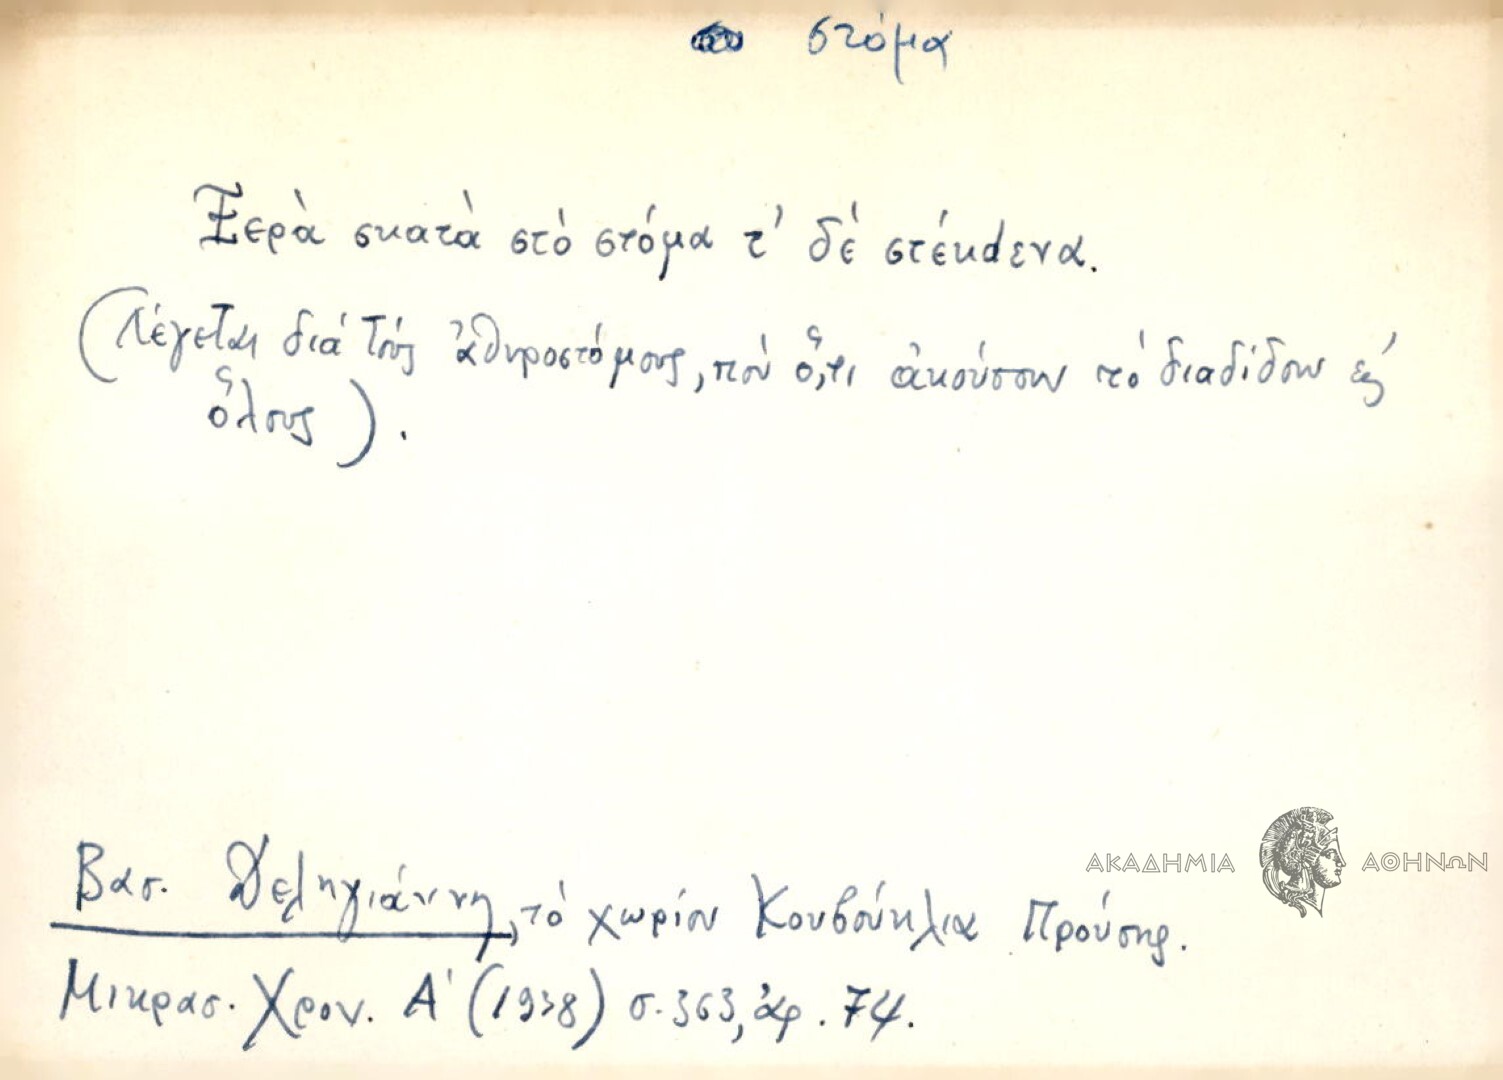 στόμα
Ξερὰ σκατὰ στὸ στόμα τ' δὲ στέκdενα.
(Λέγεται διὰ τοὺς ἀθυροστόμους, ποὺ ὅ,τι ἀκούσουν τὸ διαδίδουν εἰς
ὅλους).
ΑΚΑΔΗΜΙΑ ΑΘΗΝΩΝ
Βασ. Δεληγιάννη, τὸ χωρίον Κουβούκλια Προύσης.
Μικρασ. Χρον. Α' (1938) σ. 363, ἀρ. 74.